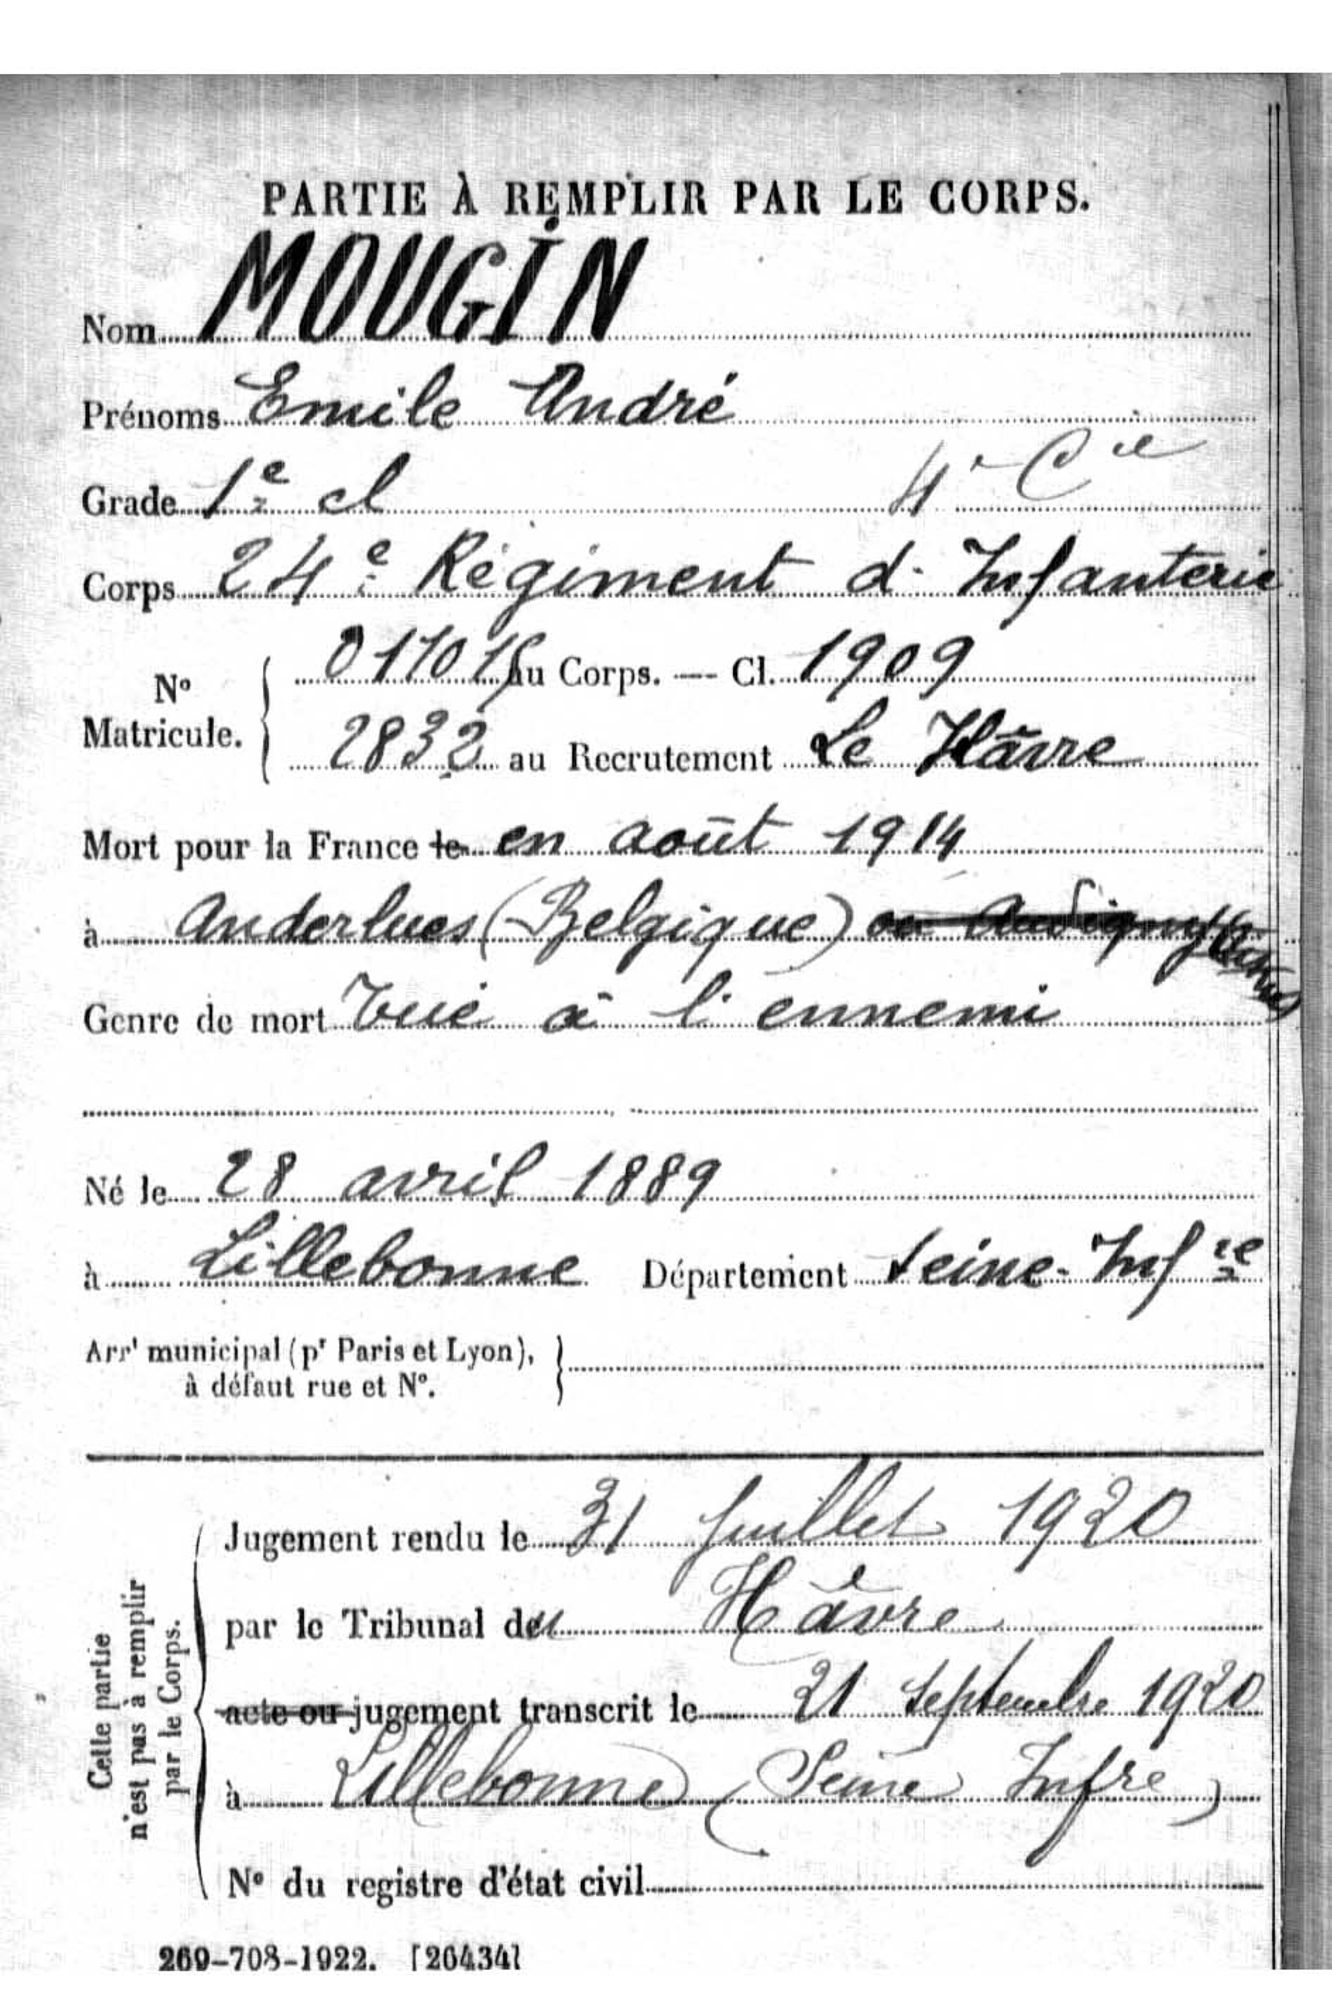 PARTIE À REMPLIR PAR LE CORPS.
Nom MOUGIN
Prénoms Emile André
Grade 1e cl 4e Cie
Corps 24e Régiment d'Infanterie
No Matricule. 
au Corps. — Cl. 1909
2832 au Recrutement Le Hâvre
Mort pour la France le en août 1914
à Anderlues (Belgique) ou Audigny
Genre de mort Tué à l'ennemi
Né le 28 avril 1889
à Lillebonne Département Seine-Infre
Arrt municipal (pr Paris et Lyon),
à défaut rue et No.
Cette partie
n'est pas à remplir
par le Corps.
Jugement rendu le 31 Juillet 1920
par le Tribunal du Hâvre
acte ou jugement transcrit le 21 Septembre 1920
à Lillebonne (Seine Infre)
No du registre d'état civil
269-708-1922. [26434]